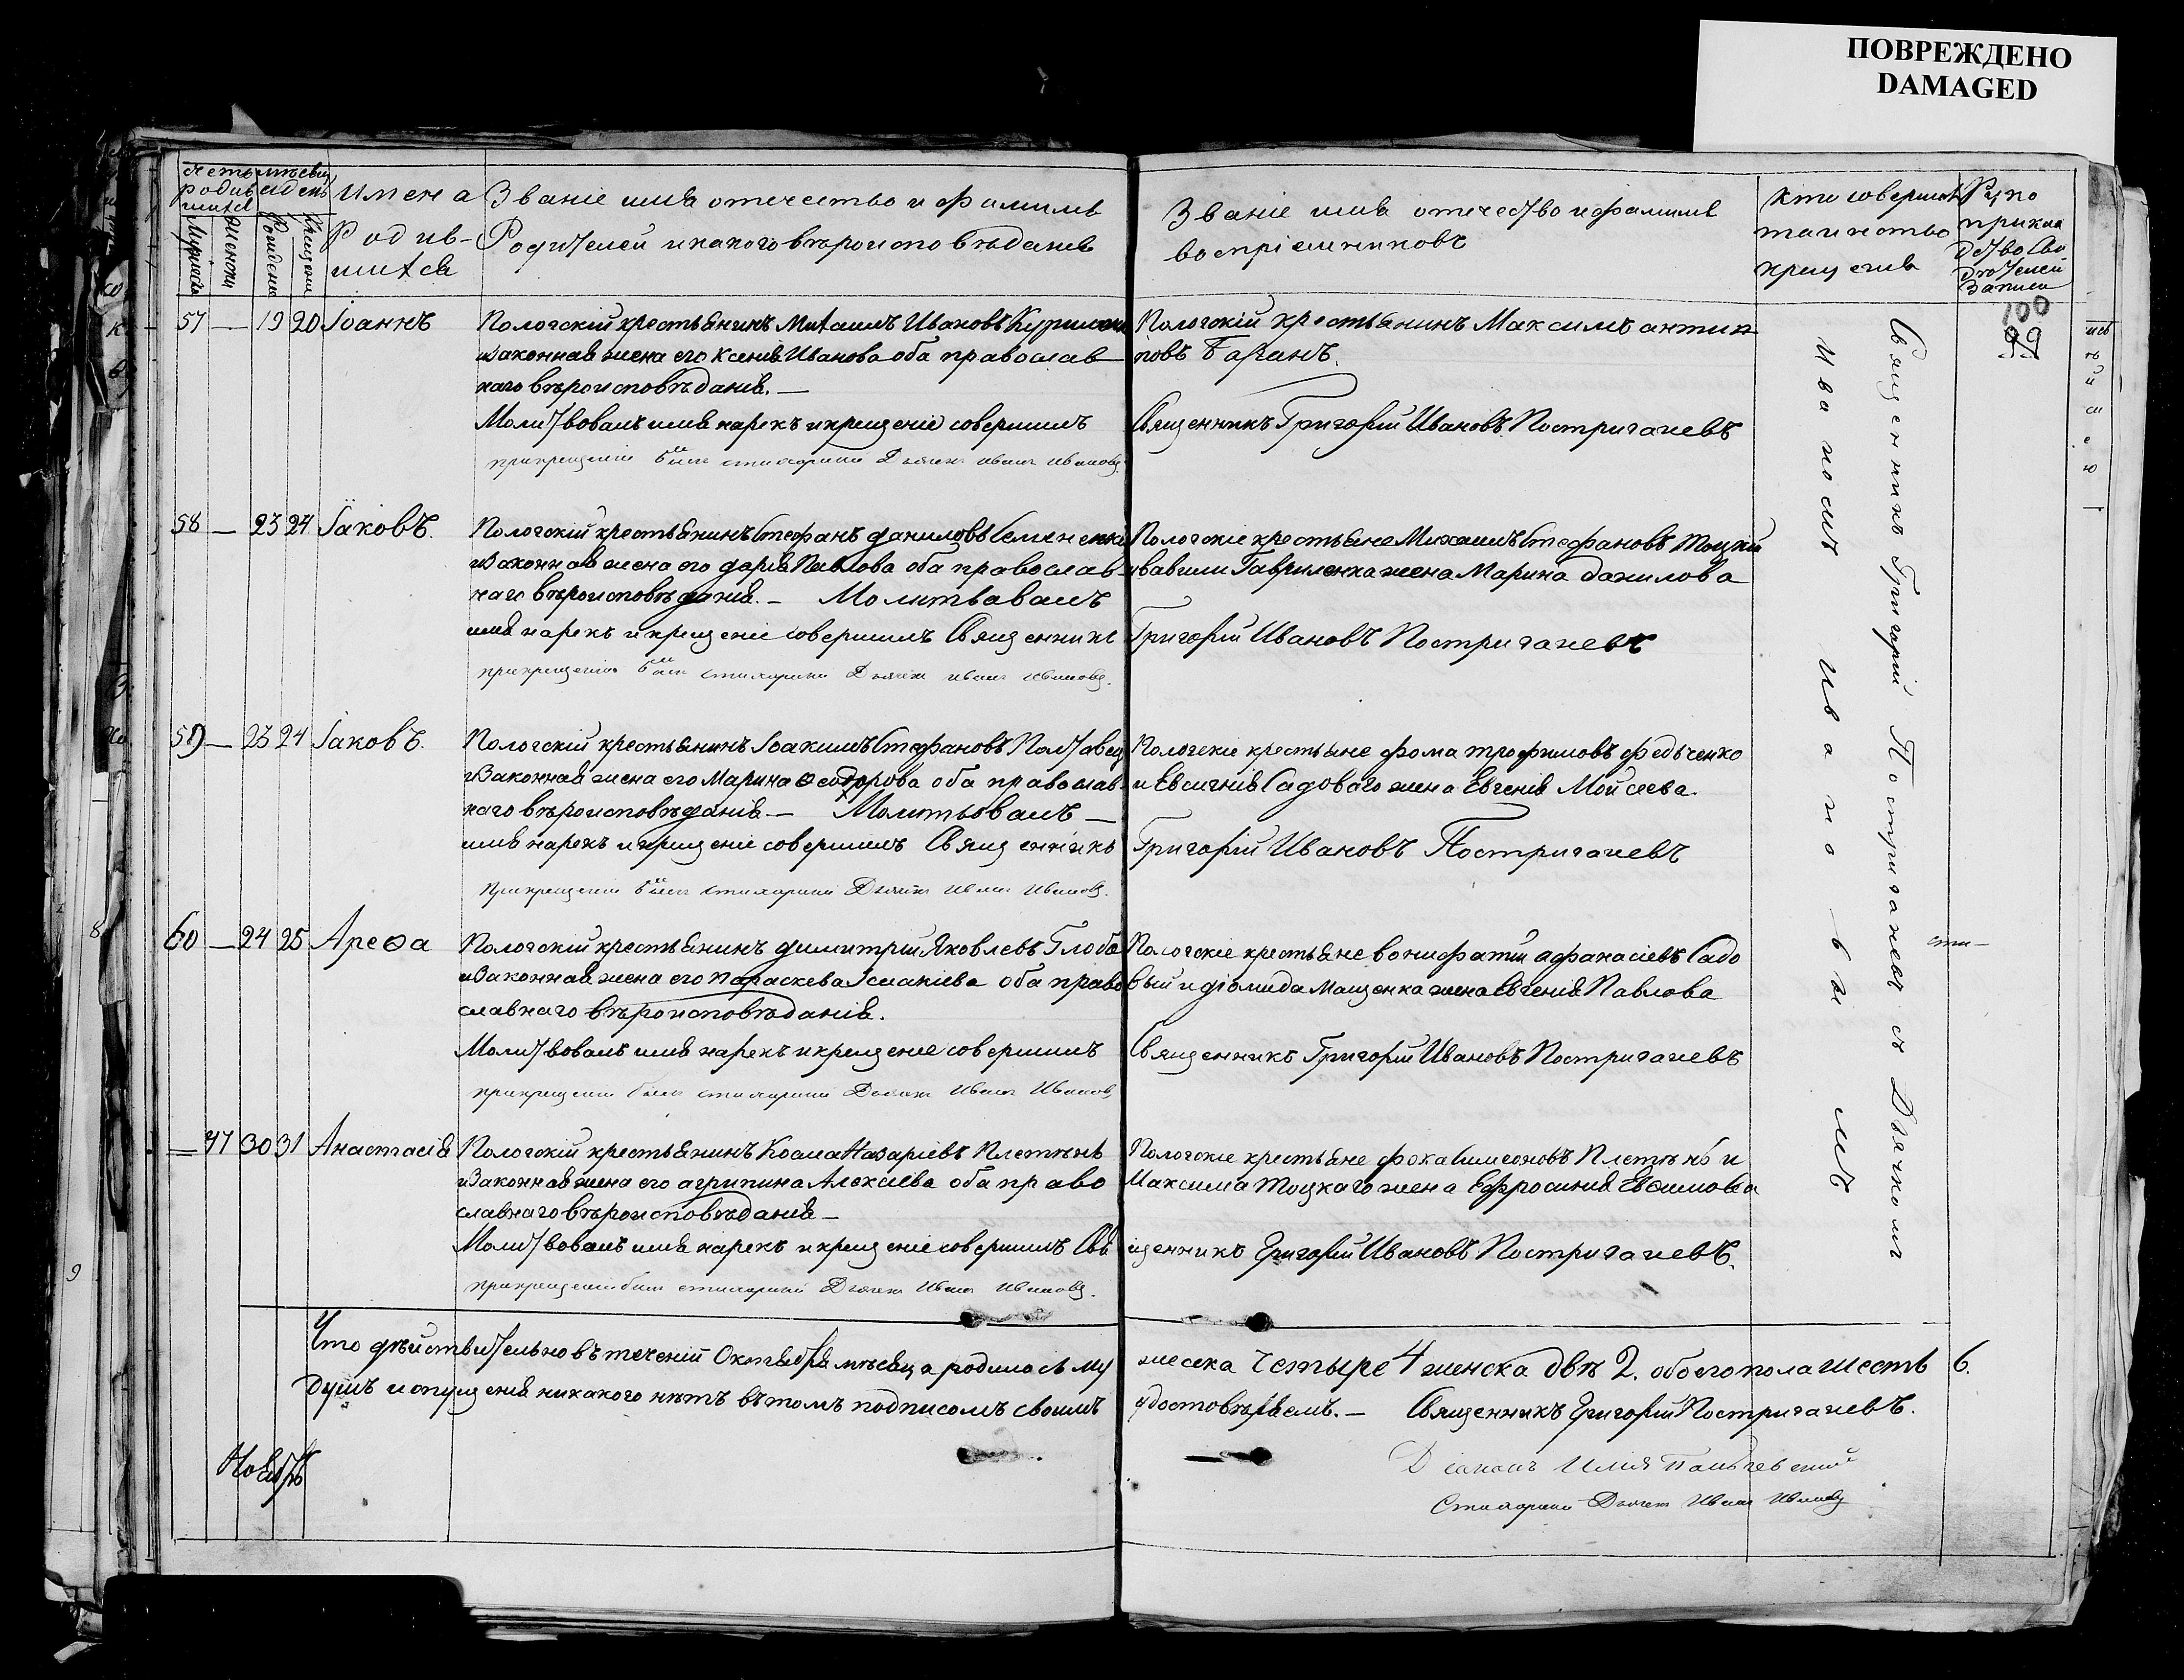 ПОВРЕЖДЕНО
DAMAGED
Имена
Родив-
шихся
Званіе имя отечество и фамилія
Родителей и какого вѣроисповѣданія
Званіе имя отечество и фамилія
воспріемниковъ
Кто совершалъ
таинство
крещенія
Руко
прикла
дство сви
дѣтелей
записи
100
99
57 — 19 20 Іоаннъ
Пологскій крестьянинъ Михаилъ Ивановъ
и законная жена его Ксенія Иванова оба православ
наго вѣроисповѣданія. —
Молитвовалъ имя нарекъ и крещеніе совершилъ
при крещеніи былъ стихарный Дьячекъ Иванъ Ивановъ
Пологскій крестьянинъ Максимъ антип
повъ Баранъ.
Священникъ Григорій Ивановъ Постригачевъ
58 — 23 24 Іаковъ.
Пологскій крестьянинъ Стефанъ даниловъ
и законная жена его дарія Павлова оба православ
наго вѣроисповѣданія. — Молитвавалъ
имя нарекъ и крещеніе совершилъ Священникъ
при крещеніи былъ стихарный Дьячекъ Иванъ Ивановъ.
Пологскіе крестьяне Михаилъ Стефановъ Тоцкій
и вавили Гавриленка жена Марина данилова
Григорій Ивановъ Постригачевъ
59 — 23 24 Іаковъ.
Пологскій крестьянинъ Іоакимъ Стефановъ Полтавец
и законная жена его Марина Ѳеодорова оба православ
наго вѣроисповѣданія — Молитвовалъ —
имя нарекъ и крещеніе совершилъ Священникъ
при крещеніи былъ стихарный Дьячекъ Иванъ Ивановъ.
Пологскіе крестьяне фома трофимовъ федьченко
и Евсигнія Садоваго жена Евгенія Мойсеева.
Григорій Ивановъ Постригачевъ
60 — 24 25 Ареѳа
Пологскій крестьянинъ димитрій Яковлевъ Глоба
и законная жена его параскева оба право
славнаго вѣроисповѣданія.
Молитвовалъ имя нарекъ и крещеніе совершилъ
при крещеніи былъ стихарный Дьячекъ Иванъ Ивановъ
Пологскіе крестьяне вонифатій афанасіевъ Садо
вый и діомида Мащенка жена Евгенія Павлова
Священникъ Григорій Ивановъ Постригачевъ
— 47 30 31 Анастасія
Пологскій крестьянинъ Косма Назаріевъ Плетѣнь
и законная жена его агрипина Алексіева оба право
славнаго вѣроисповѣданія —
Молитвовалъ имя нарекъ и крещеніе совершилъ Свя
при крещеніи былъ стихарный Дьячекъ Иванъ Ивановъ.
Пологскіе крестьяне фока Симеоновъ Плетѣнь и
Максима Тоцкаго жена Ефросинія Евѳимова
щенникъ Григорій Ивановъ Постригачевъ.
Священникъ Григорій Постригачевъ съ Дьячкомъ
Ивановымъ
Что дѣйствительно въ теченіи Октября мѣсяца родилось му
жеска четыре 4 женска двѣ 2. обоего пола шесть 6.
душъ и опущенія никакого нѣтъ въ томъ подписомъ своимъ
удостовѣряемъ. — Священникъ Григорій Постригачевъ.
Діаконъ Илія
Стихарный Дьячекъ Иванъ Ивановъ
Ноябрь